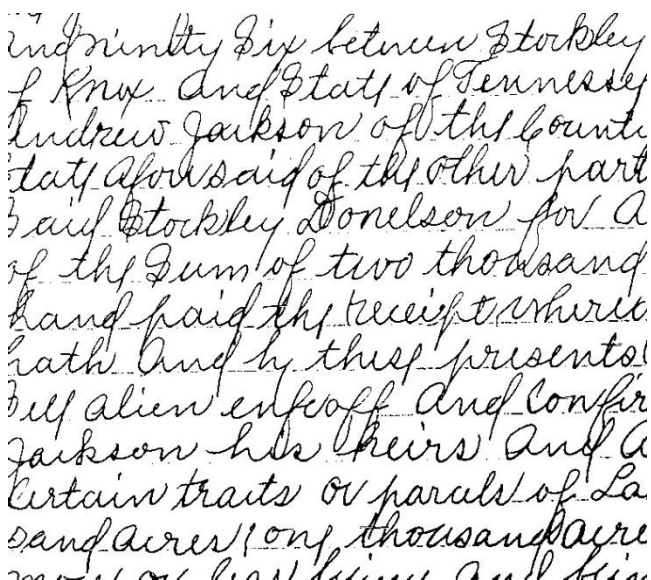 and ninety Six between Stockley
of Knox and State of Tennessee
Andrew Jackson of the County
State aforesaid of the other part
Said Stockley Donelson for
of the Sum of two thousand
hand paid the receipt where
hath and by these presents
Sell alien enfeoff and Confir
Jackson his heirs and
Certain tracts or parcels of La
sand acres one thousand acre
more or less being and